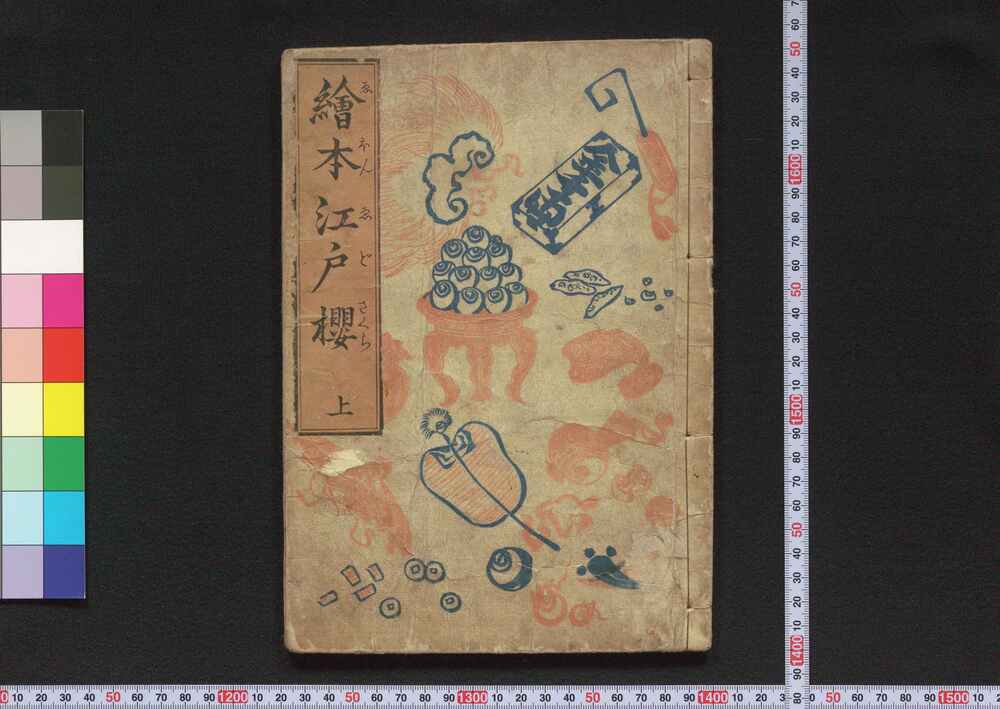 繪本江戸櫻 上
ゑほんゑどさくら
60 50 40 30 20 10 1600 90 80 70 60 50 40 30 20 10 1500 90 80 70 60 50 40 30 20 10 1400 90 80
10 20 30 40 50 60 70 80 90 1200 10 20 30 40 50 60 70 80 90 1300 10 20 30 40 50 60 70 80 90 1400 10 20 50 60 70 80 90 1500 10